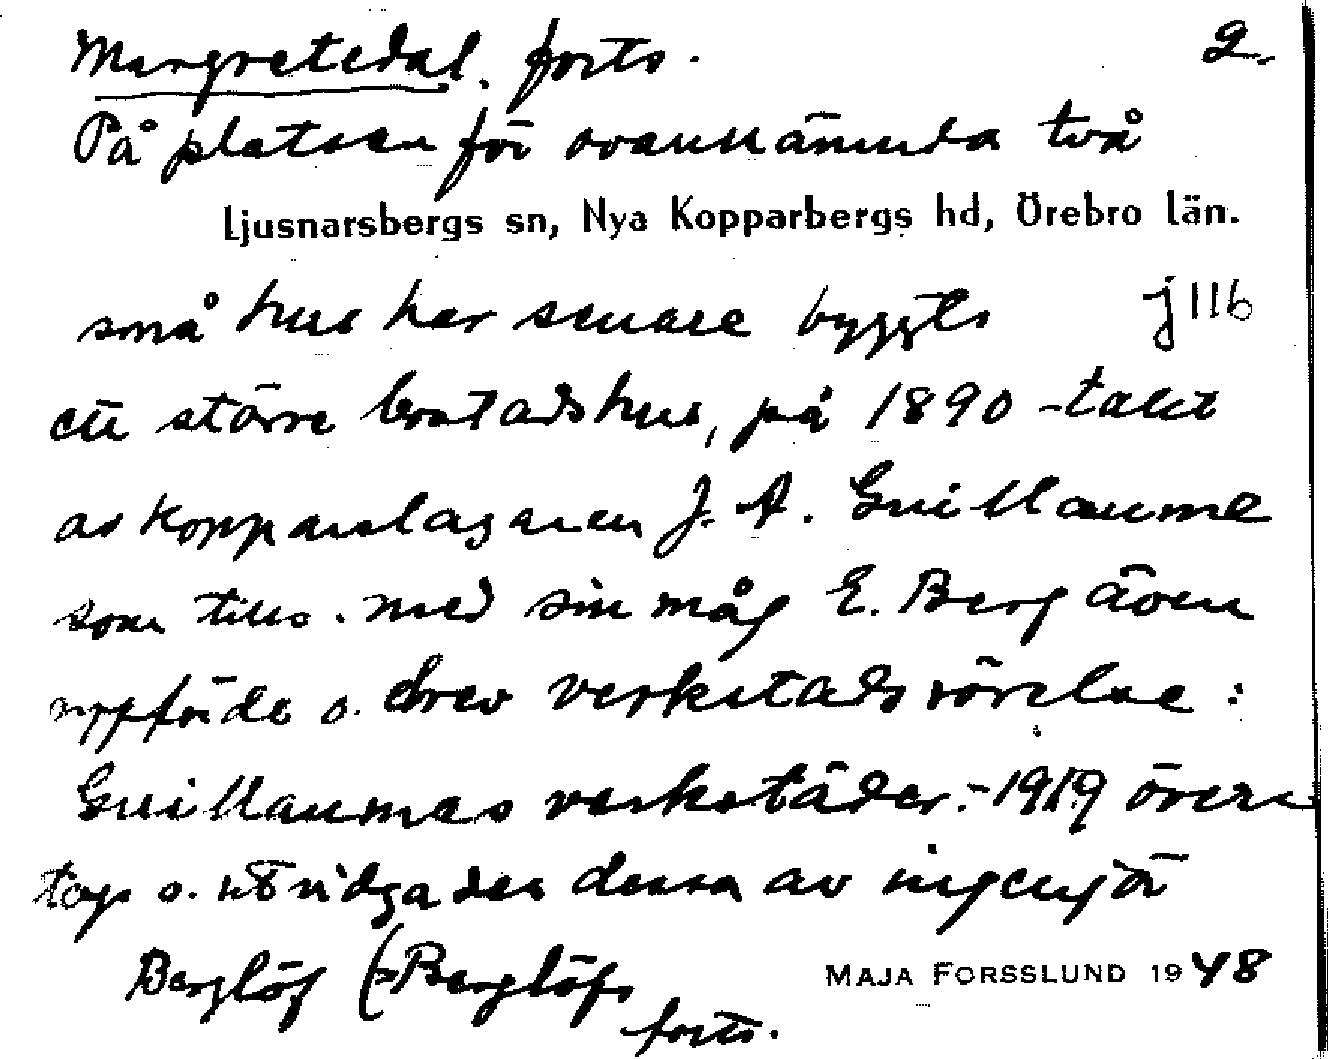 Margretedal. forts. 2.
På platsen för ovannämnda två
Ljusnarsbergs sn, Nya Kopparbergs hd, Örebro län.
små hus har senare byggts j 116
ett större bostadshus, på 1890-talet
av kopparslagaren J. A. Guillaume
som tills. med sin måg E. Berg även
uppförde o. drev verkstadsrörelse:
Guillaumes verkstäder.- 1919 över-
togs o. utvidgades dessa av ingenjör
Berglöf (Berglöfs
MAJA FORSSLUND 1948
forts.